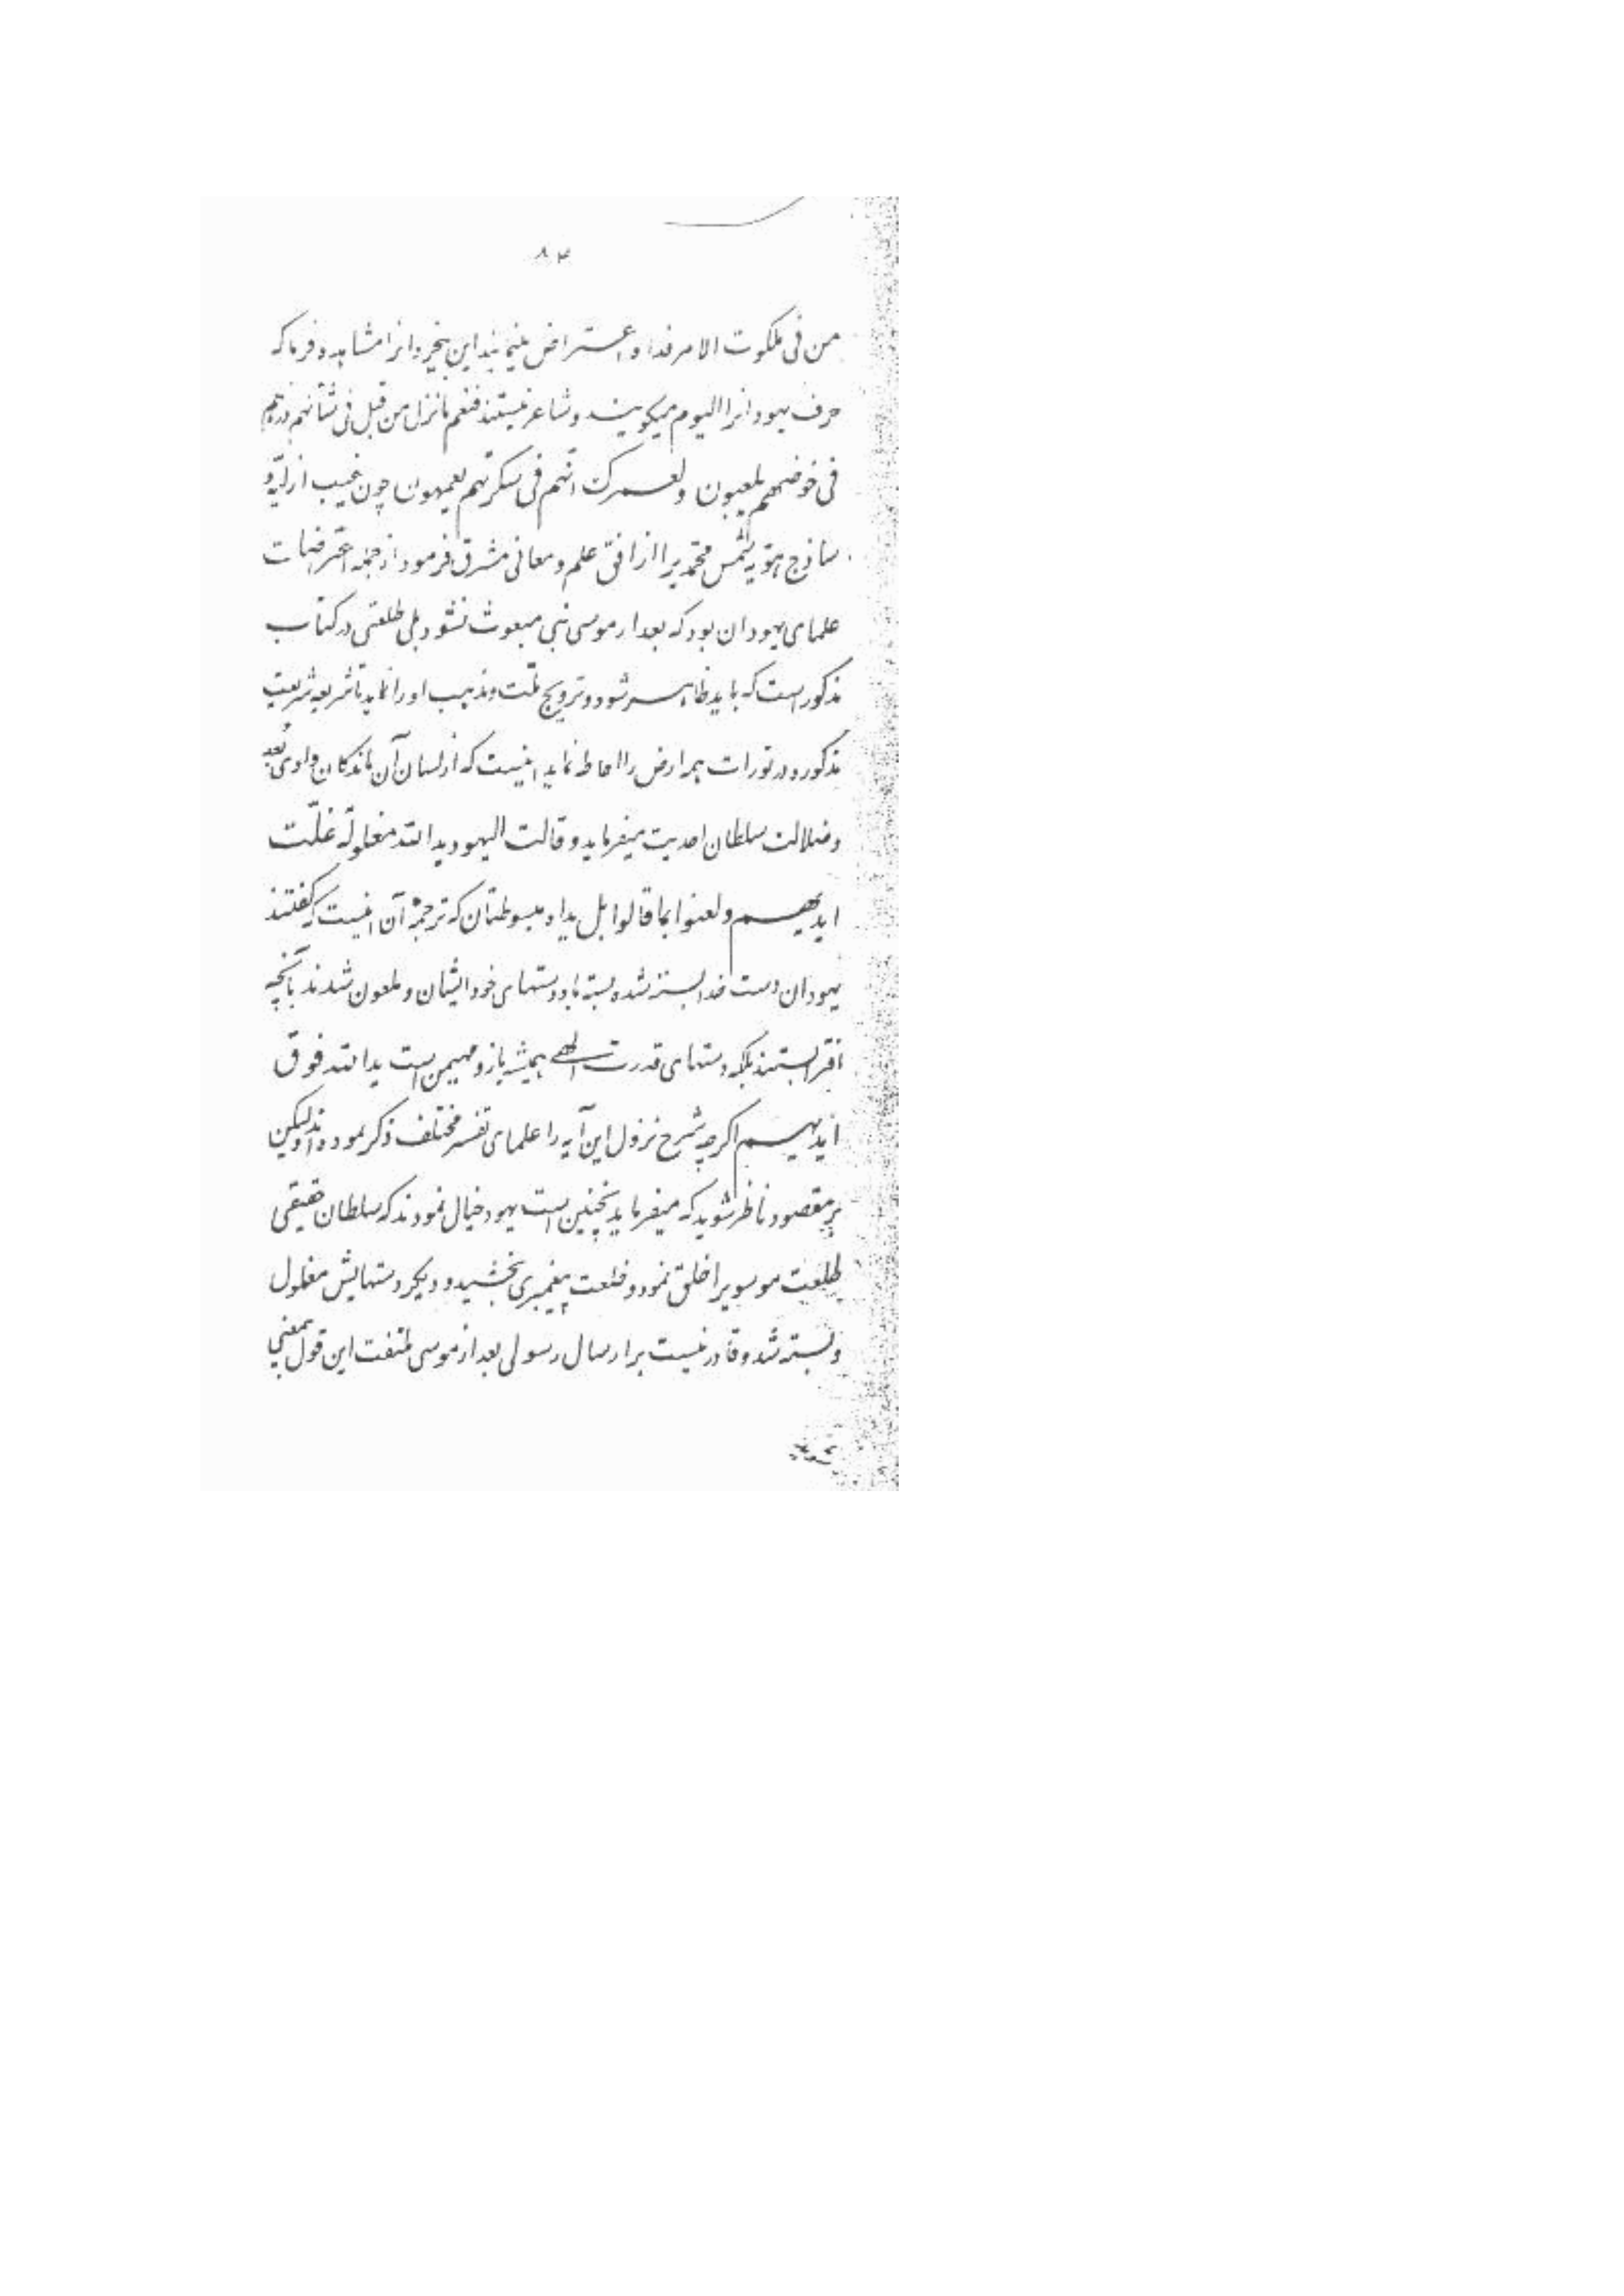 ۸۴
من فی ملکوت الامر فداه و اعتراض مینمایند این بیخردانرا مشاهده فرما که
حرف یهودانرا الیوم میگویند و شاعر نیستند فنعم ما نزل من قبل فی شأنهم ذرهم
فی خوضهم یلعبون ولعمرک انّهم فی سکرتهم یعمهون چون غیب ازلیّه و
ساذج هوّیه شمس محمّدیرا از افق علم و معانی مشرق فرمود از جمله اعتراضات
علمای یهود ان بود که بعد از موسی نبی مبعوث نشود بلی طلعتی در کتاب
مذکور است که باید ظاهر شود و ترویج ملّت و مذهب او را نماید تا شریعه شریعت
مذکوره در تورات همه ارض را احاطه نماید اینست که از لسان آن ماندگان وادی بُعد
و ضلالت سلطان احدیت میفرماید و قالت الیهود یدالله مغلولة غلّت
ایدیهم ولعنوا بما قالوا بل یداه مبسوطتان که ترجمهٔ آن اینست که گفتند
یهودان دست خدا بسته شده بسته باد دستهای خود ایشان و ملعون شدند بآنچه
افترا بستند بلکه دستهای قدرت الهی همیشه باز و مهیمن است یدالله فوق
ایدیهم اگرچه شرح نزول این آیه را علمای تفسیر مختلف ذکر نموده‌اند ولیکن
بر مقصود ناظر شوید که میفرماید نچنین است یهود خیال نمودند که سلطان حقیقی
طلعت موسویرا خلق نمود و خلعت پیغمبری بخشید و دیگر دستهایش مغلول
و بسته شد و قادر نیست بر ارسال رسولی بعد از موسی ملتفت این قول بیمعنی